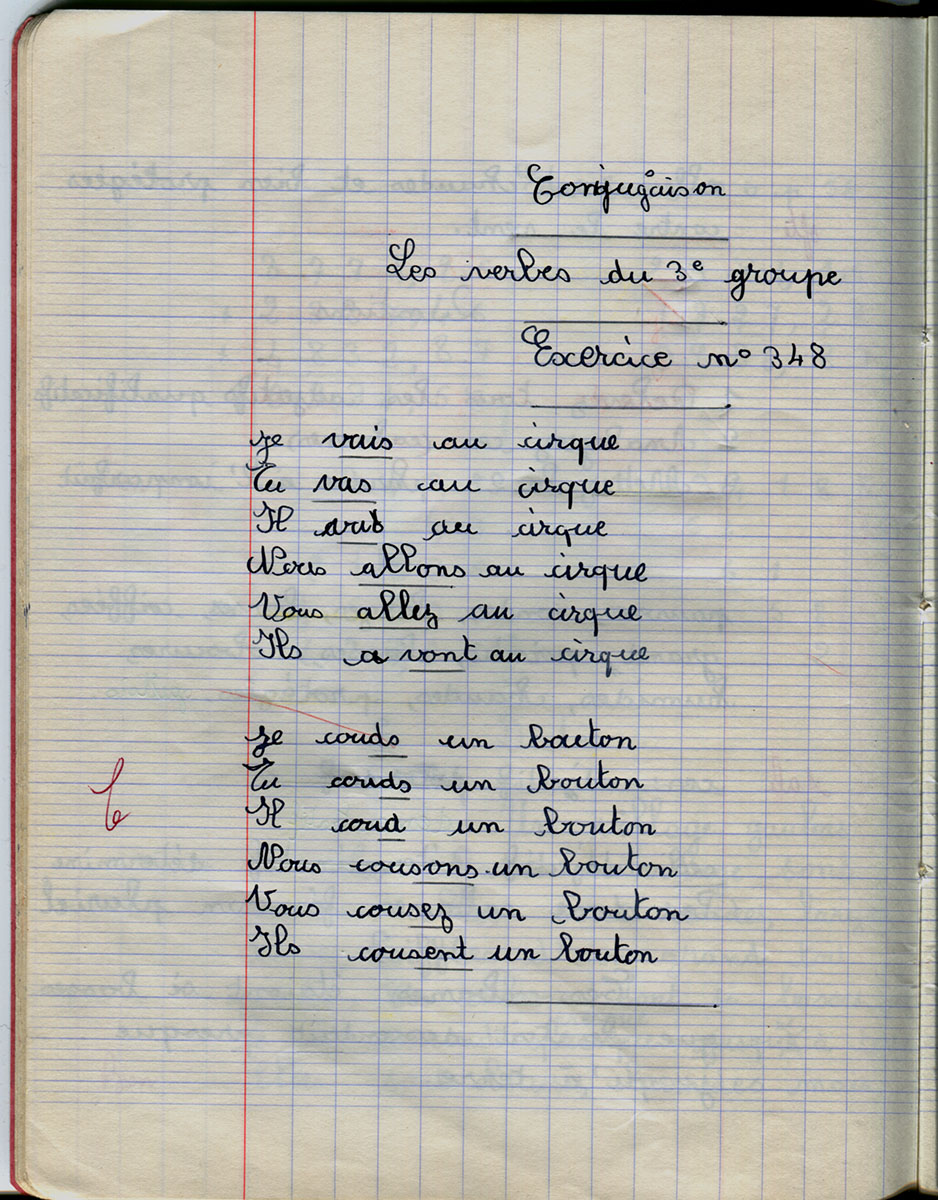 Conjugaison
Les verbes du 3e groupe
Exercice n° 348
Je vais au cirque
Tu vas au cirque
Il va au cirque
Nous allons au cirque
Vous allez au cirque
Ils a vont au cirque
Je couds un bouton
Tu couds un bouton
Il coud un bouton
Nous cousons un bouton
Vous cousez un bouton
Ils cousent un bouton